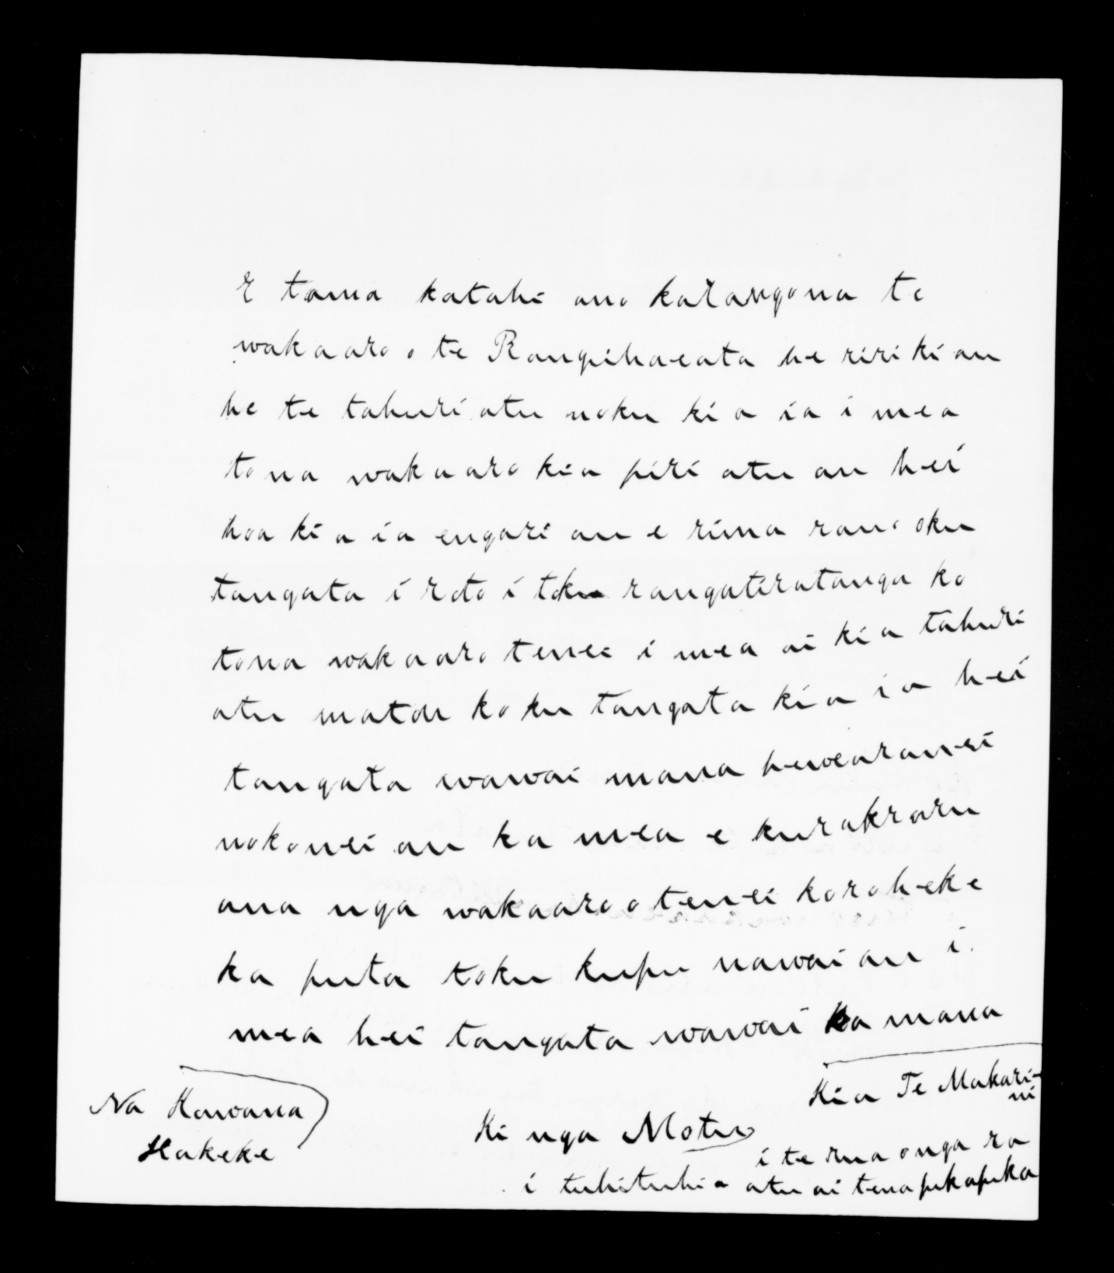 E tama katahi ano ka rangona te
wakaaro o te Rangihaeata he riri ki au
he te tahuri atu noku ki a ia i mea
tona wakaaro kia piri atu au hei
hoa ki a ia engari au e rima rau o oku
tangata i roto i toku rangatiratanga ko
tona wakaaro tenei i mea ai kia tahuri
atu matou ko ku tangata kia ia hei
tangata wawai mana
nokonei au ka mea e
ana nga wakaaro o tenei koroheke
ka puta toku kupu nawai au i
mea hei tangata wawai ka mana
Kia Te Makari-
ni
Na Kawana
Hakeke
Ki nga Motu
i te rua o nga ra
i tuhituhia atu ai tena pukapuka